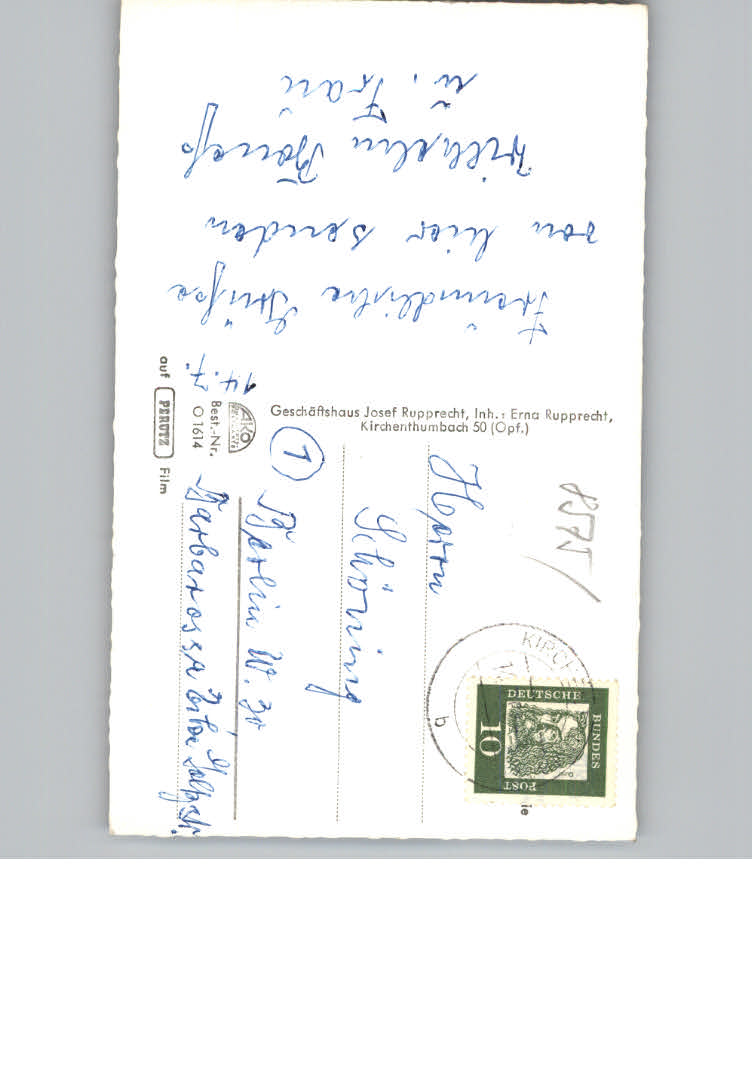 14. 7.
Freundliche Grüße
von hier senden
Wilhelm
u. Frau
Geschäftshaus Josef Rupprecht, Inh.: Erna Rupprecht,
Kirchenthumbach 50 (Opf.)
AKO
Best.-Nr.
O 1614
auf PERUTZ Film
8575
Herrn
Schöning
1 Berlin W. 30
Barbarossa
KIRCHE
b
DEUTSCHE
BUNDES
POST
10
ie